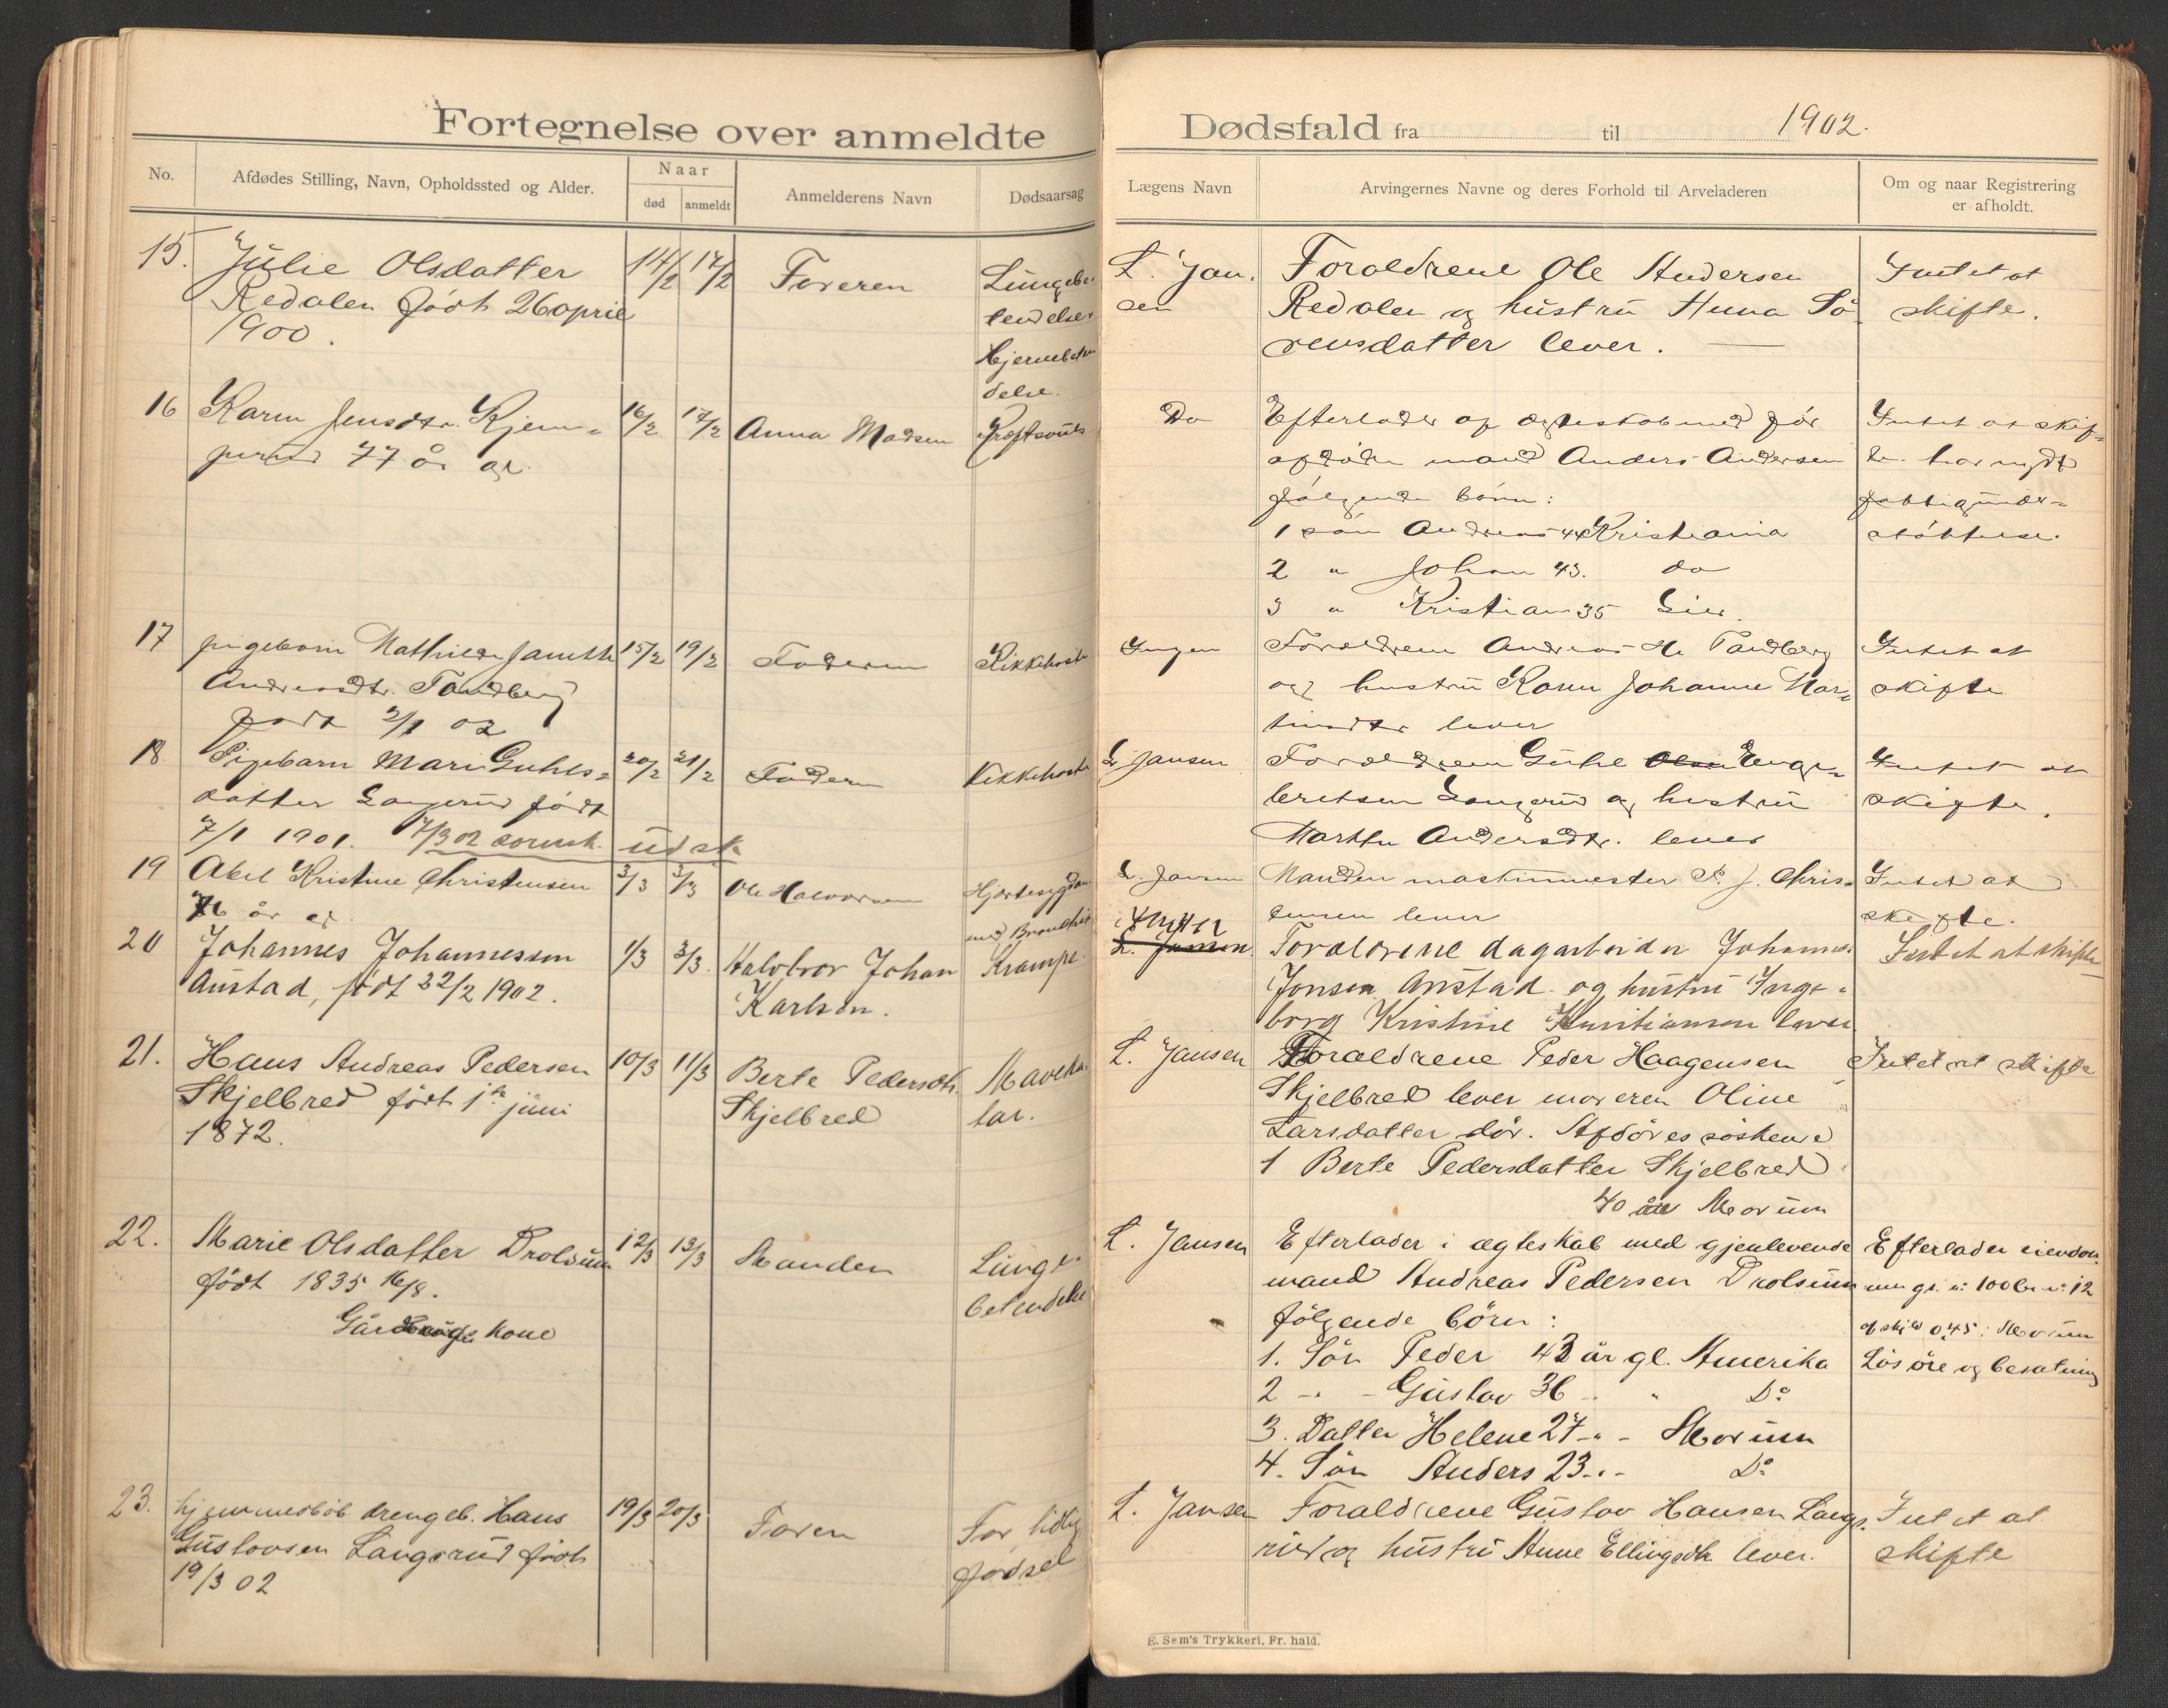 Fortegnelse over anmeldte
No.
Afdødes Stilling, Navn, Opholdssted og Alder.
Naar
død
anmeldt
Anmelderens Navn
Dødsaarsag
15.
Julie Olsdatter
Redalen født 26 april
1900.
14/2
17/2
Faderen
Lungebe-
tendelse
Hjernebeten
delse.
16
Karen Jensdtr. Kjem-
perud 77 år gl.
16/2
17/2
Anna Madsen
17
pigebarn Mathilde Janette
Andreasdtr. Tandberg
født 2/1 02
15/2
19/2
Faderen
Kikkhoste
18
Pigebarn Mari Guhls-
datter Langerud født
7/1 1901. 7/3 02 udsk
20/2
21/2
Faderen
Kikkehoste
19
Abel Kristine Christensen
76 år gl
3/3
3/3
Ole Halvorsen
Hjertesygdom
med Bronchit
20
Johannes Johannessen
Austad, født 22/2 1902.
1/3
3/3.
Halvbror Johan
Karlsen.
Krampe.
21.
Hans Andreas Pedersen
Skjelbred født 1ste juni
1872.
10/3
11/3
Berte Pedersdtr.
Skjelbred
Maveka-
tar.
22.
Marie Olsdatter Drolsum
født 1835 16/8.
Gårdbrugs kone
12/3
13/3
Manden
Lunge-
betendelse
23.
hjemmedøb drengeb. Hans
Gustavsen Langerud født
19/3 02
19/3
20/3
Faren
For tidlig
fødsel
Dødsfald fra til 1902.
Lægens Navn
Arvingernes Navne og deres Forhold til Arveladeren
Om og naar Registrering
er afholdt.
L. Jan-
sen
Foraldrene Ole Andersen
Redalen og hustru Anna Sø-
rensdatter lever.
Intet at
skifte.
Do
Efterlader af ægteskab med før
afdøde mand Anders Andersen
følgende børn:
1 søn Andreas 44 Kristiania
2 " Johan 43. do
3 " Kristian 35 Lier.
Intet at skif-
te. har nydt
fattigunder-
støttelse.
Ingen
Forældrene Andreas H. Tandberg
og hustru Karen Johanne Mar-
tinsdtr lever
Intet at
skifte
L Jansen
Forældrene Guhl Olsen Enge-
bretsen Langerud og hustru
Marthe Andersdtr. lever
Intet at
skifte.
L. Jansen
Manden maskinmester P. J. Chris-
tensen lever
Intet at
skifte.
L. Jansen.
Foraldrene dagarbeider Johannes
Jonsen Austad og hustru Inge-
borg Kristine Kristiansen lever
Intet at skifte
L. Jansen
Foraldrene Peder Haagensen
Skjelbred lever moreren Oline
Larsdatter dør. Afdødes søskende
1 Berte Pedersdatter Skjelbred
40 år Modum
Intet at skifte
L. Jansen
Efterlader i ægteskab med gjenlevende
mand Andreas Pedersen Drolsum
følgende børn:
1. Søn Peder 42 år gl. Amerika
2 -"- Gustav 36 - " Do
3. Datter Helene 27 -"- Modum
4. Søn Anders 23 -"- Do
Efterlader eiendom
men gr. n: 100 br. n: 12
af skyld 0,45 i Modum
Løsøre og besætning
L. Jansen
Foraldrene Gustav Hansen Lange-
rud og hustru Anne Ellingsdtr. lever.
Intet at
skifte
E. Sem's Trykkeri, Fr. hald.